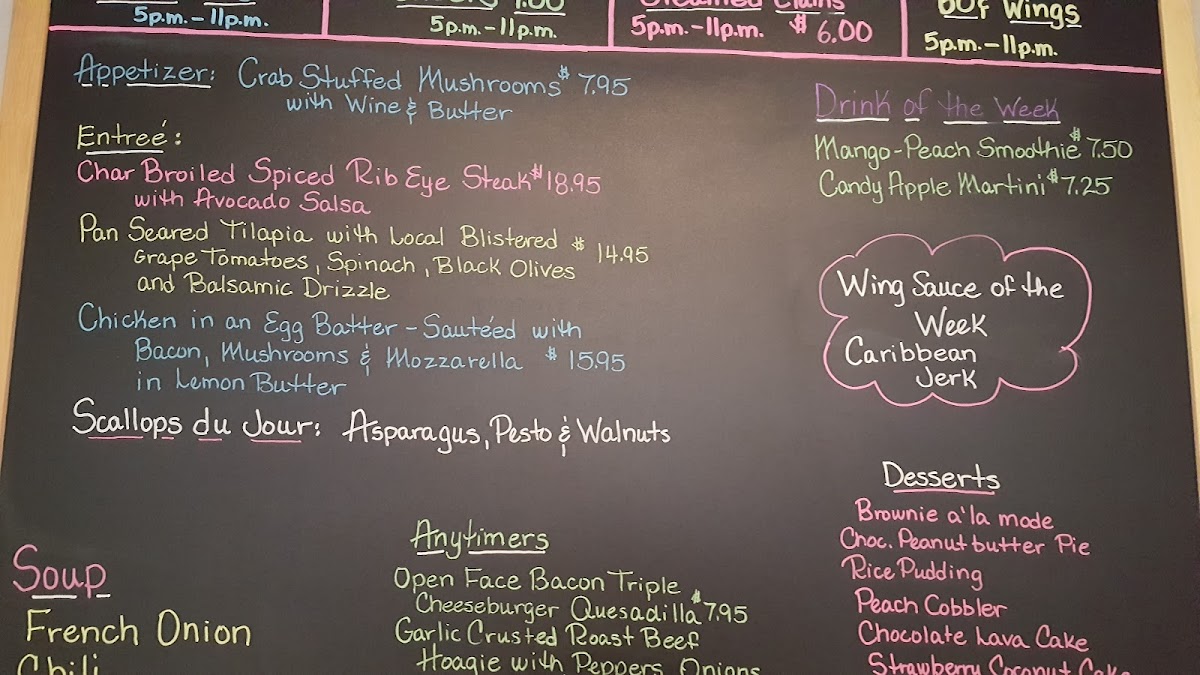 5p.m.-11p.m.
1.00
5p.m.-11p.m.
Steamed Clams
5p.m.-11p.m. $6.00
Wings
5p.m.-11p.m.
Appetizer: Crab Stuffed Mushrooms $7.95
with Wine & Butter
Entreé:
Char Broiled Spiced Rib Eye Steak $18.95
with Avocado Salsa
Pan Seared Tilapia with Local Blistered $14.95
Grape Tomatoes, Spinach, Black Olives
and Balsamic Drizzle
Chicken in an Egg Batter - Sauteéd with
Bacon, Mushrooms & Mozzarella $15.95
in Lemon Butter
Scallops du Jour: Asparagus, Pesto & Walnuts
Drink of the Week
Mango-Peach Smoothie $7.50
Candy Apple Martini $7.25
Wing Sauce of the
Week
Caribbean
Jerk
Soup
French Onion
Chili
Anytimers
Open Face Bacon Triple
Cheeseburger Quesadilla $7.95
Garlic Crusted Roast Beef
Hoagie with Peppers, Onions
Desserts
Brownie a'la mode
Choc. Peanutbutter Pie
Rice Pudding
Peach Cobbler
Chocolate Lava Cake
Strawberry Coconut Cake